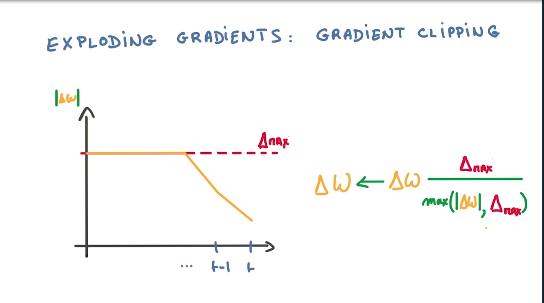 EXPLODING GRADIENTS: GRADIENT CLIPPING
|Δω|
Δmax
Δω ← Δω Δmax / max(|Δω|, Δmax)
... t-1 t